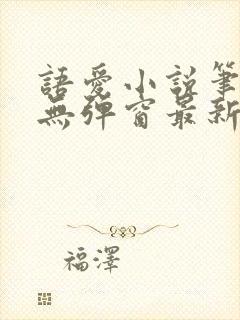 語愛小說筆
無彈窗最新
福澤